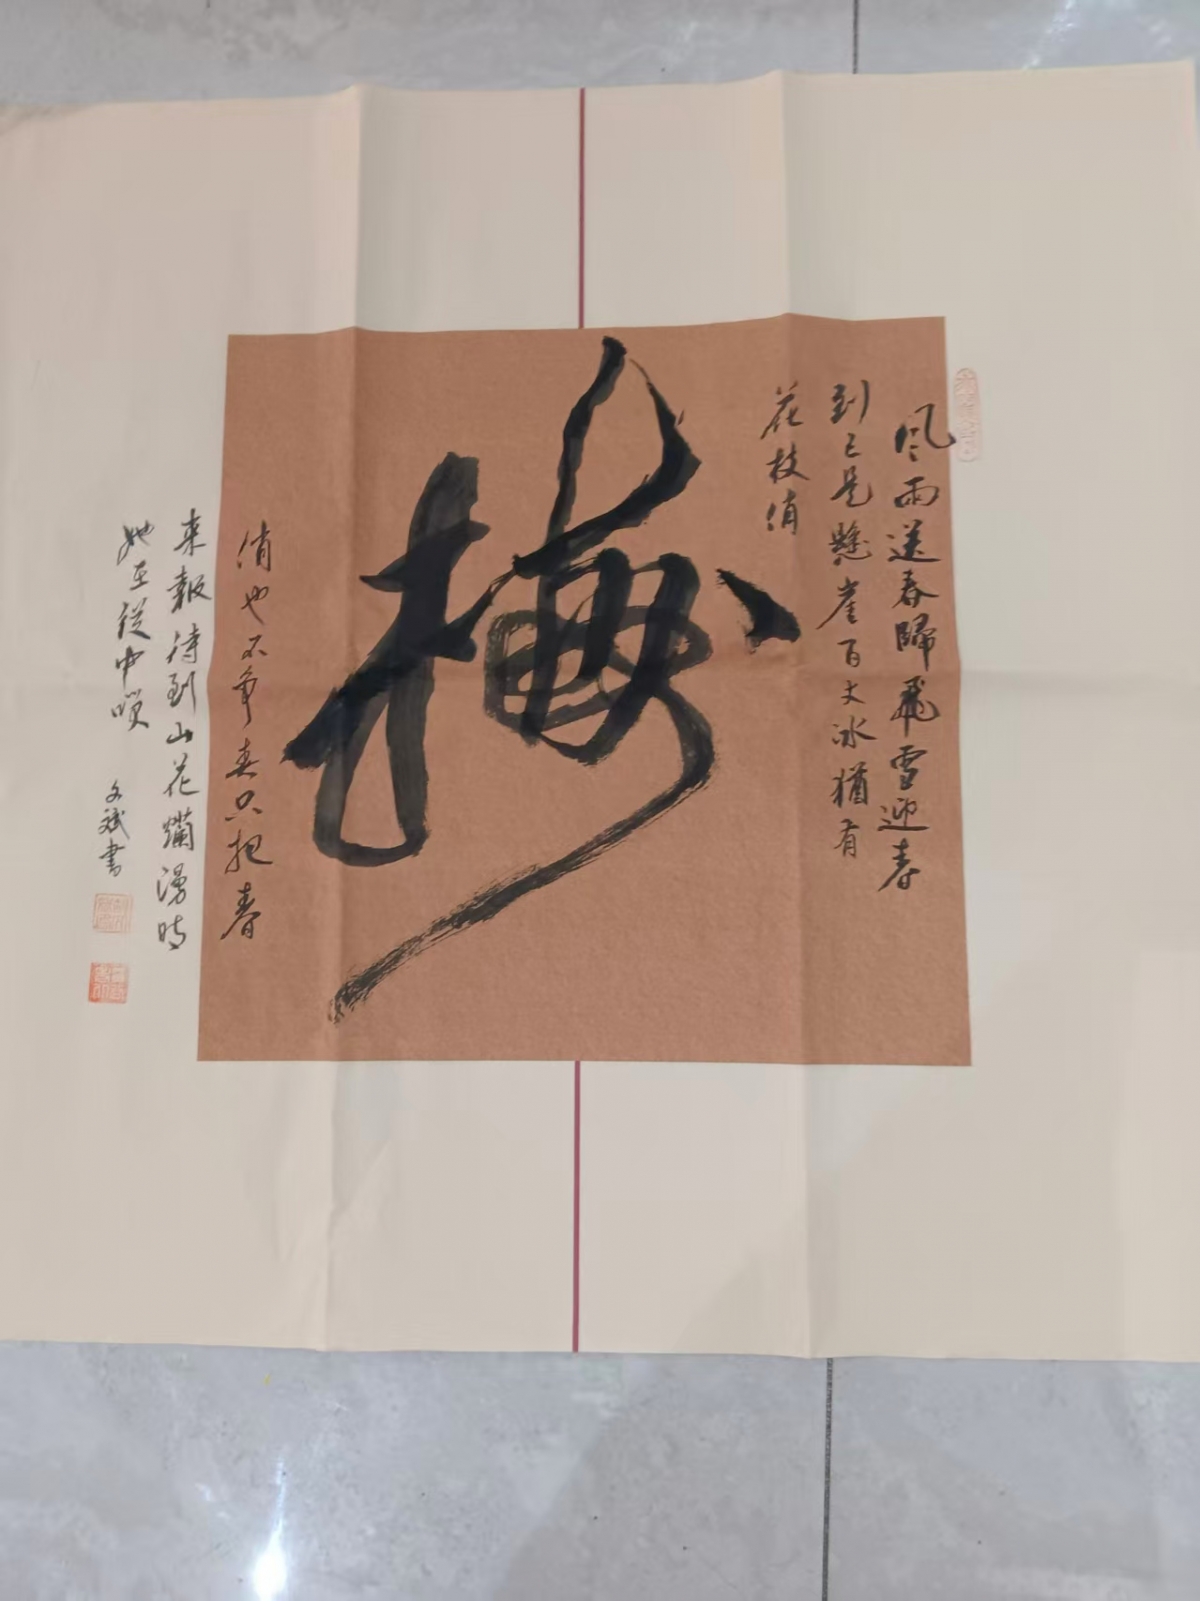 梅
风雨送春歸飛雪迎春
到已是懸崖百丈冰猶有
花枝俏
俏也不争春只把春
来報待到山花爛漫時
她在從中唉
文斌書